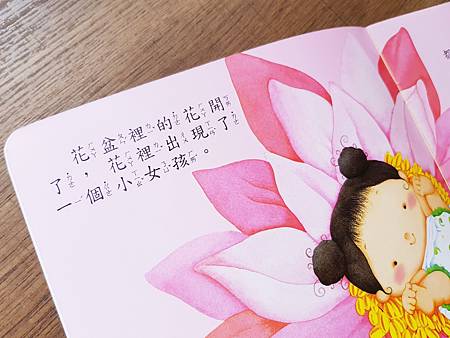 花盆裡的花開
了，花裡出現了
一個小女孩。